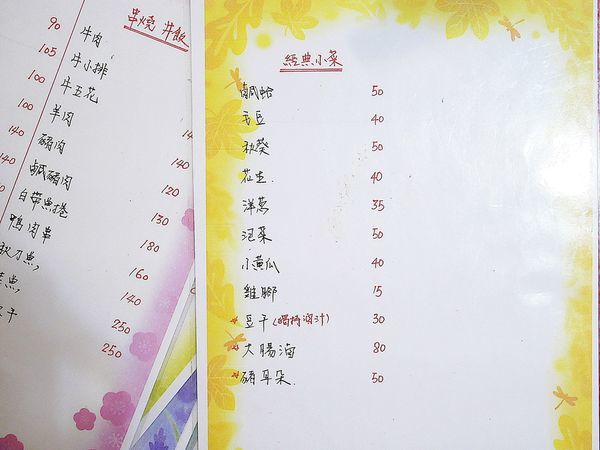 串燒 丼飯
90
105 牛肉
100 牛小排
100 牛五花
140 羊肉
140 豬肉
鹹豬肉
白帶魚捲
鴨肉串
秋刀魚
魚
干
120
130
180
160
140
250
250
經典小菜
鹹蛤 50
毛豆 40
秋葵 50
花生 40
洋蔥 35
泡菜 50
小黃瓜 40
雞腳 15
豆干(獨門滷汁) 30
大腸滷 80
豬耳朵 50